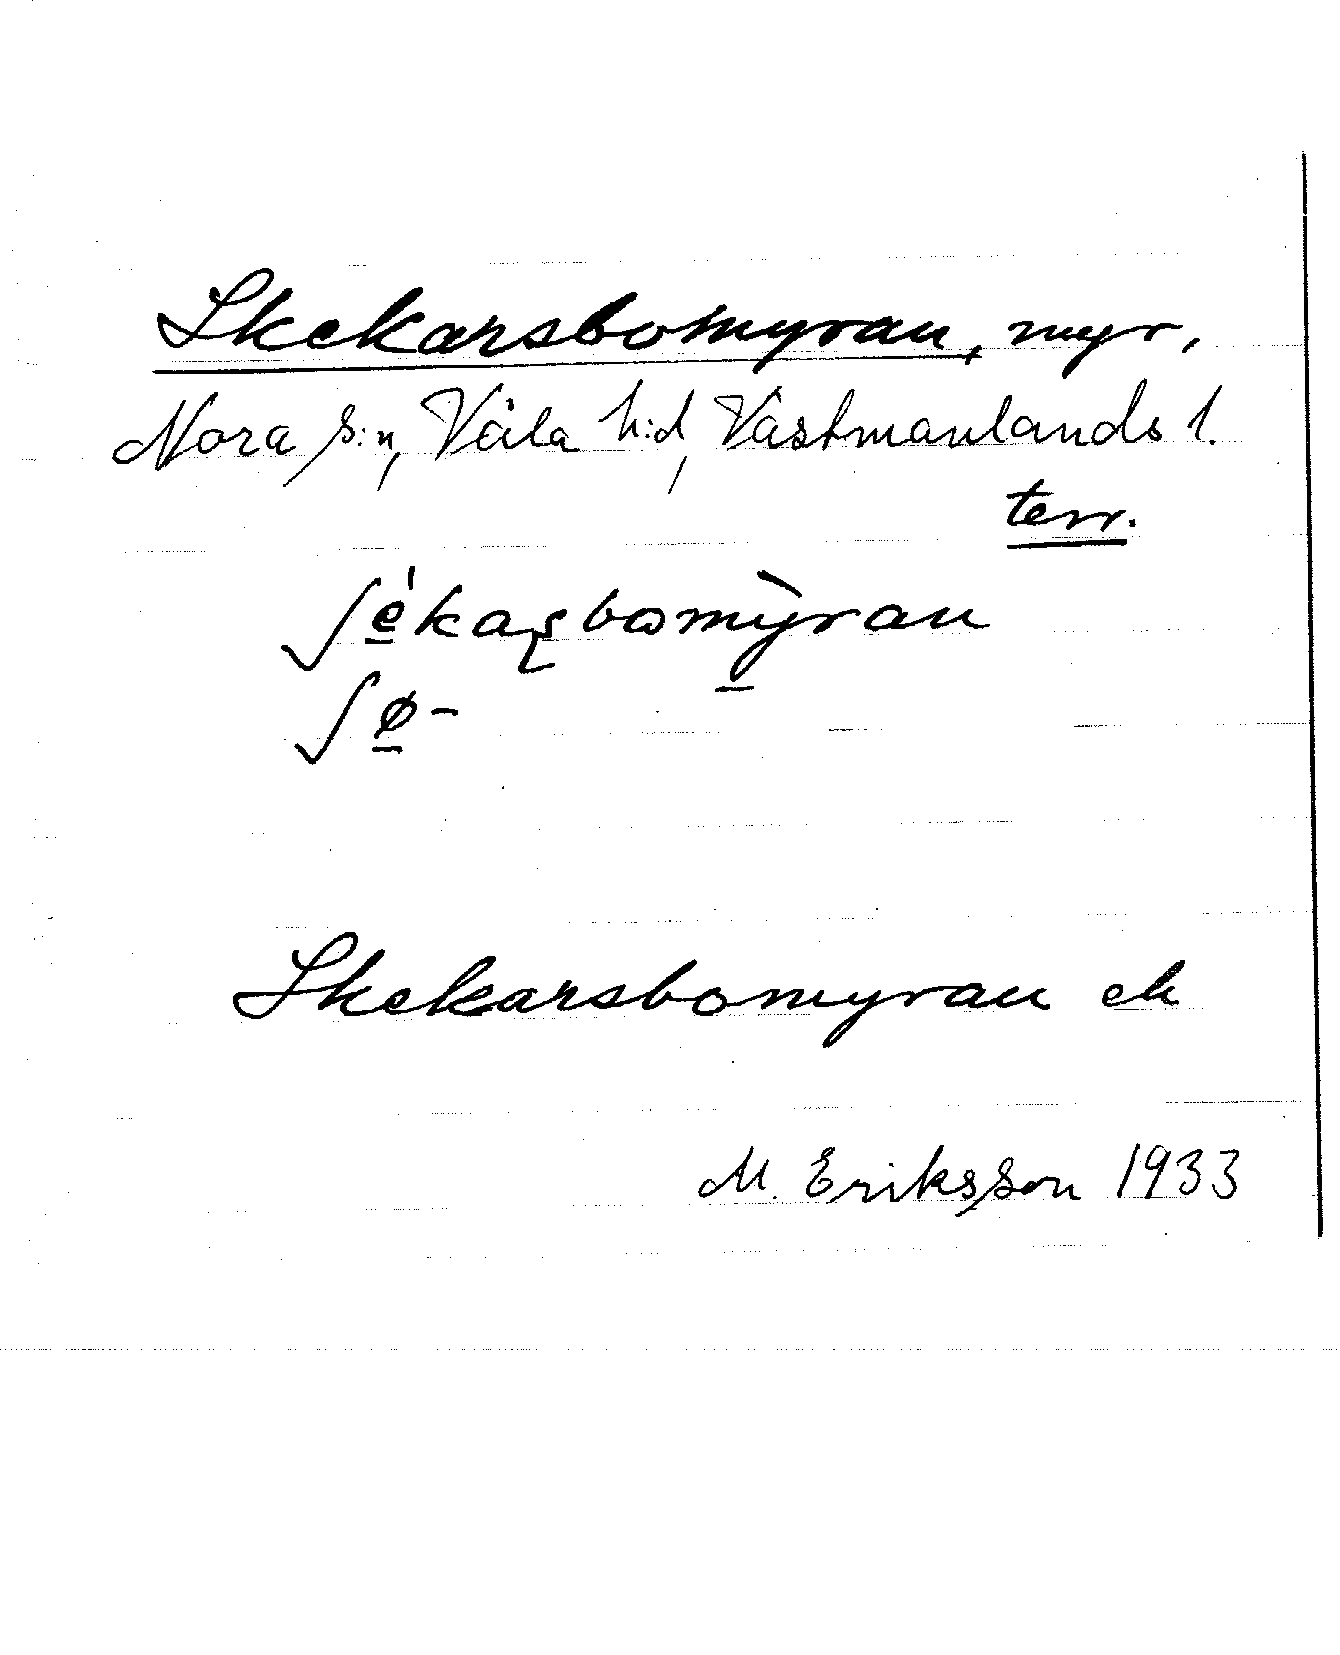 Skekarsbomyran, myr,
Nora s:n, Våla h:d, Västmanlands l.
terr.
ʃe̠ˈkaʂbomỳ̠ran
ʃø̠-
Skekarsbomyran ek
M. Eriksson 1933